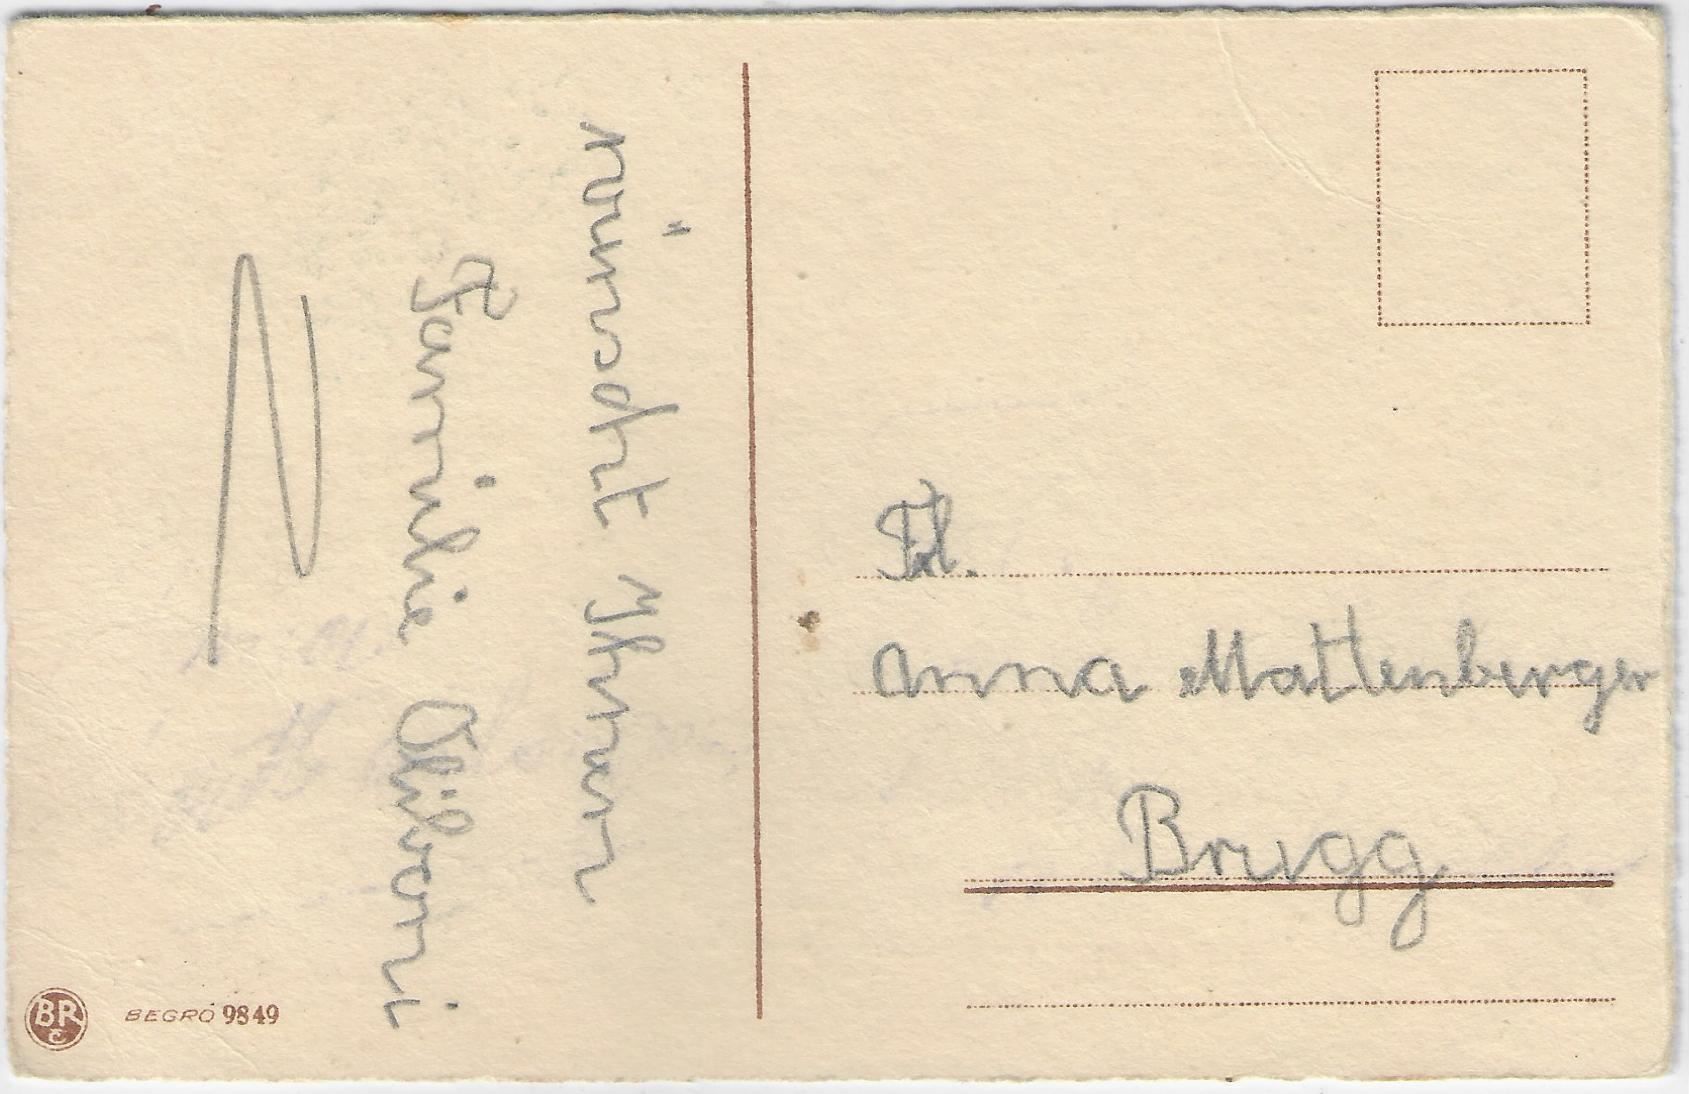 wünscht Ihnen
Familie Albani
Frl.
Anna Mattenberger
Brugg
BR
C
BEGRO 9849